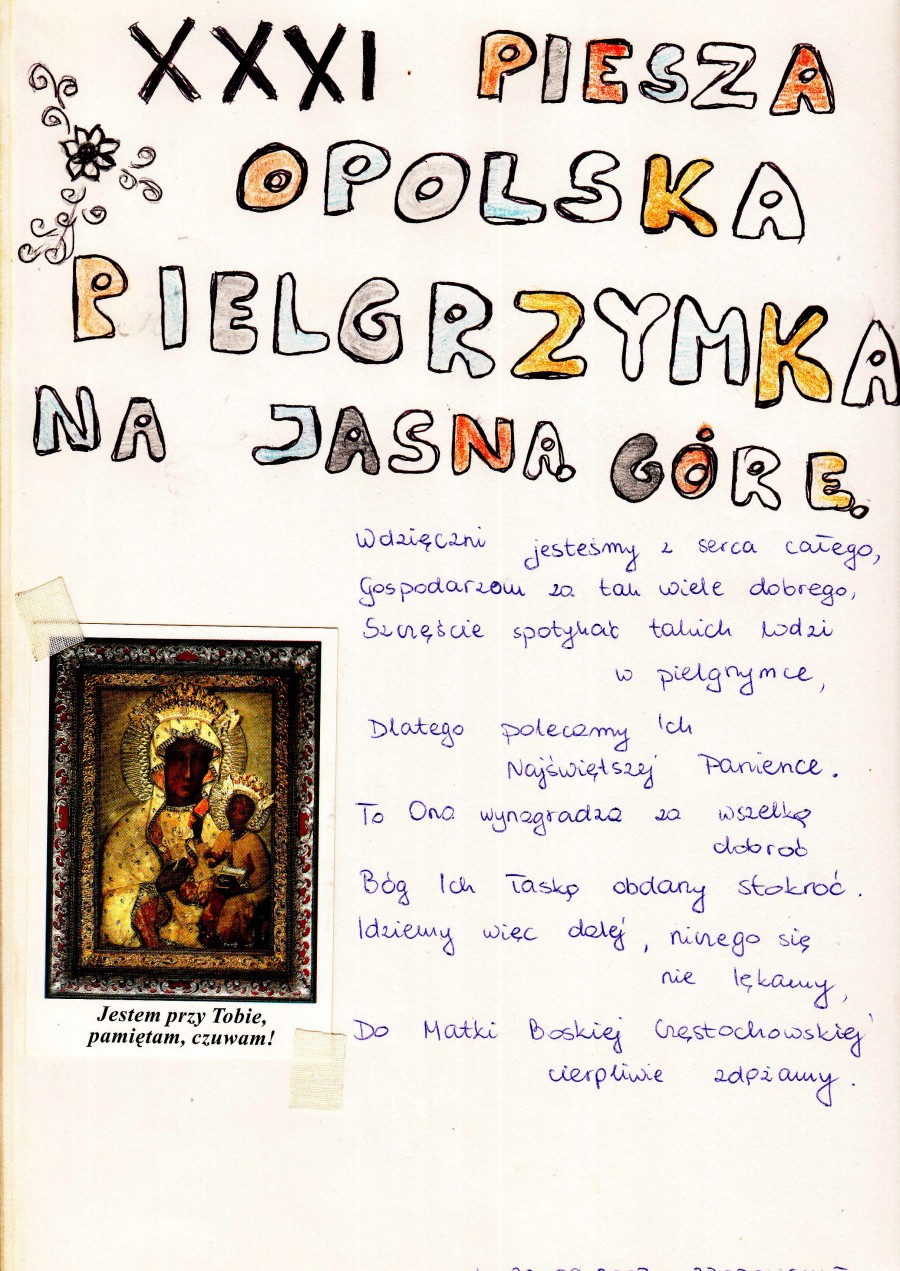 XXXI PIESZA
OPOLSKA
PIELGRZYMKA
NA JASNĄ GÓRĘ.
Wdzięczni jesteśmy z serca całego,
Gospodarzom za tak wiele dobrego,
Szczęście spotykać takich ludzi
w pielgrzymce,
Dlatego polecamy Ich
Najświętszej Panience.
To Ona wynagradza za wszelką
dobroć
Bóg Ich łaską obdarzy stokroć.
Idziemy więc dalej, niczego się
nie lękamy,
Do Matki Boskiej Częstochowskiej
cierpliwie zdążamy.
Jestem przy Tobie,
pamiętam, czuwam!